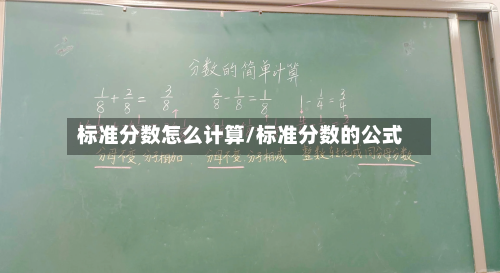 分数的简单计算
1/8 + 2/8 = 3/8 2/8 - 1/8 = 1/8 1 - 1/4 = 3/4
标准分数怎么计算/标准分数的公式
分母不变 分子相加 分母不变 分子相减 整数转化成同分母分数